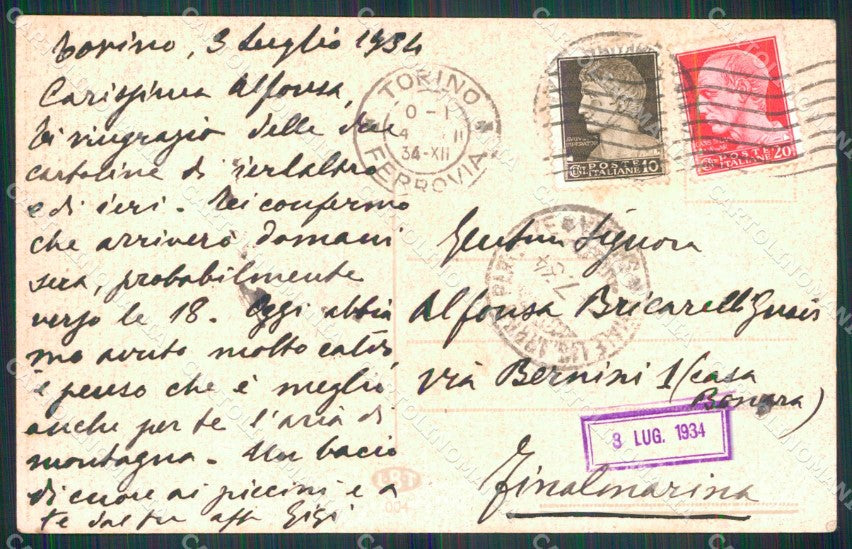 Torino, 3 Luglio 1934
Carissima Alfonsa,
ti ringrazio delle due
cartoline di ierlaltro
e di ieri. Ti confermo
che arriverò domani
sera, probabilmente
verso le 18. Oggi abbia
mo avuto molto caldo
e penso che è meglio
anche per te l'aria di
montagna. Un bacio
di cuore ai piccini e a
te dal tuo aff Gigi
TORINO
FERROVIA
34-XII
POSTE
ITALIANE 10
POSTE
ITALIANE 20
Signora
Alfonsa Bricarelli
via Bernini 1 (casa
Bonora)
3 LUG. 1934
Finalmarina
004
CARTOLINOMANIA